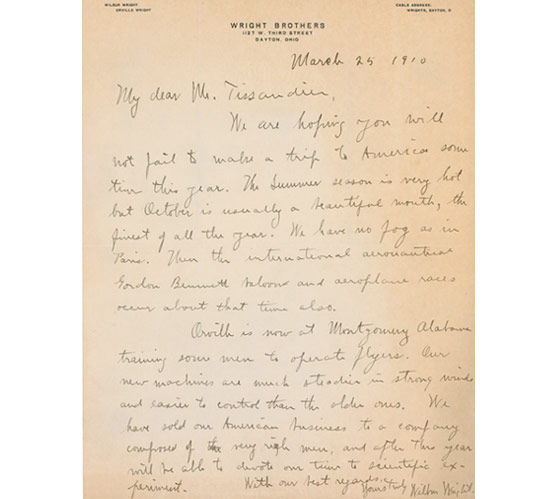 WILBUR WRIGHT
ORVILLE WRIGHT
CABLE ADDRESS:
WRIGHTS, DAYTON, O
WRIGHT BROTHERS
1127 W. THIRD STREET
DAYTON, OHIO
March 25 1910
My dear Mr. Tissandier,
We are hoping you will
not fail to make a trip to America some
time this year. The summer season is very hot
but October is usually a beautiful month, the
finest of all the year. We have no fog as in
Paris. Then the international aeronautical
Gordon Bennett baloons and aeroplane races
occur about that time also.
Orville is now at Montgomery Alabama
training some men to operate flyers. Our
new machines are much steadier in strong winds
and easier to control than the older ones. We
have sold our American business to a company
composed of very rich men, and after this year
will be able to devote our time to scientific ex-
periment. With our best regards,
Yours truly Wilbur Wright.